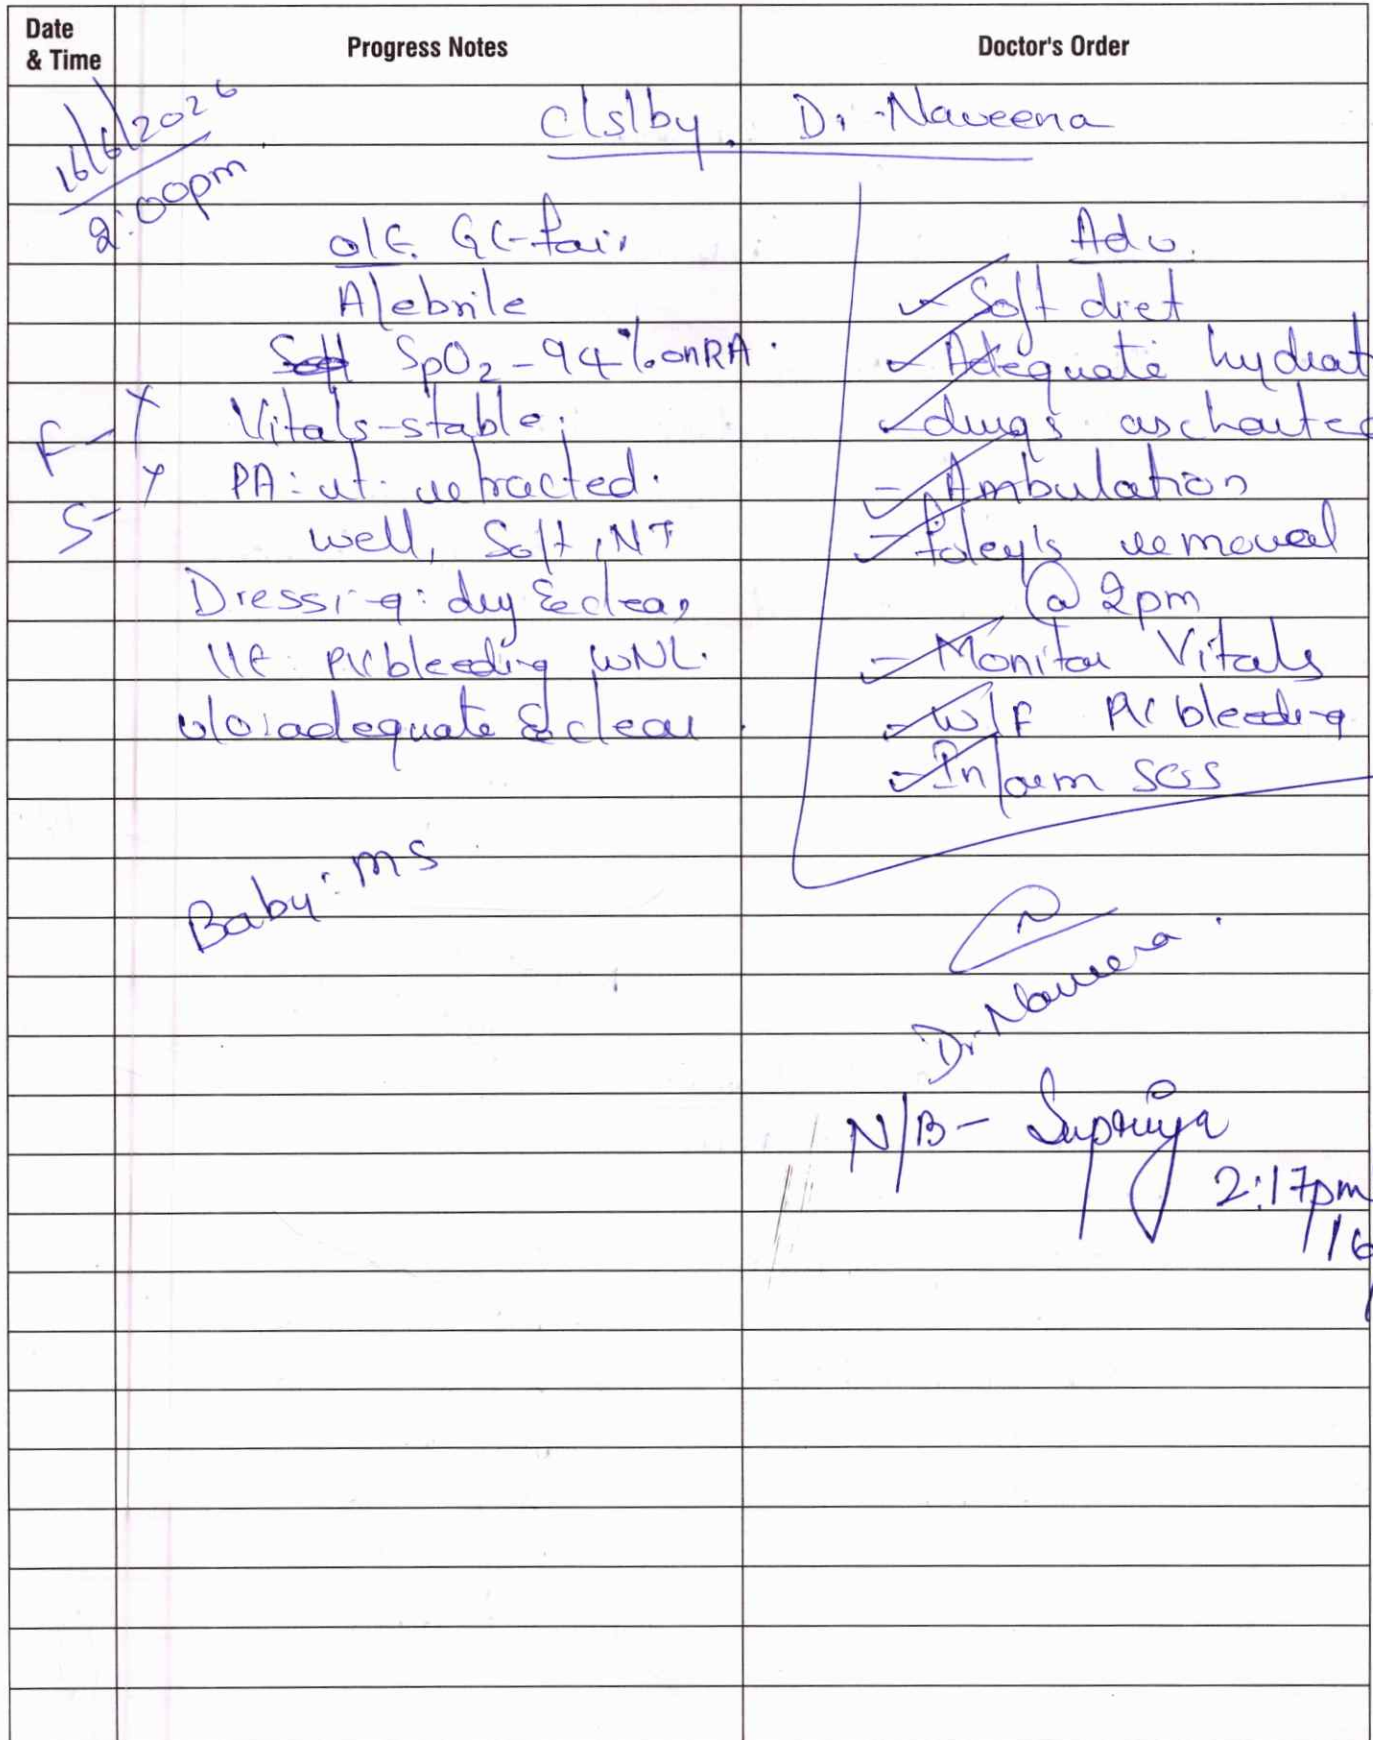 Date & Time
Progress Notes
Doctor's Order
16/6/2026
2:00pm
c/s/by. Dr. Naveena
O/E. GC-fair
Afebrile
SpO2 - 94% on RA.
F - Y
Vitals-stable;
S - Y
PA: ut. retracted.
well, Soft, NT
Dressing: dry & clean
L/E: PV bleeding WNL.
u/o: adequate & clear
Baby: MS
Adv.
- Soft diet
- Adequate hydrat
- drugs as charted
- Ambulation
- Foley's removal
@ 2pm
- Monitor Vitals
- W/F PV bleeding
- Inform SOS
Dr. Naveena
N/B - Supriya
2:17pm